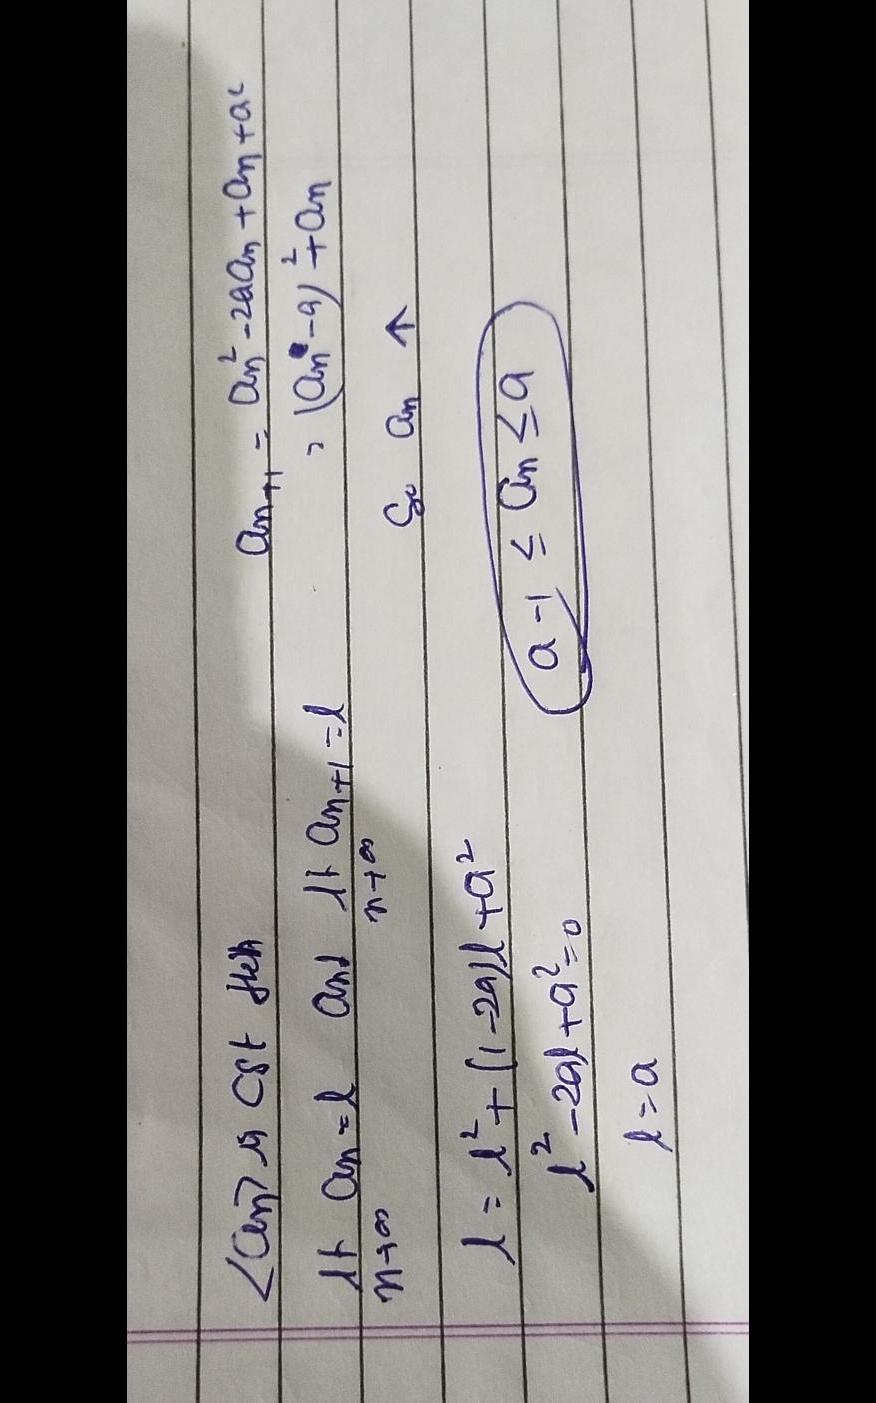 <an> is cgt then
lt an = l and lt an+1 = l
n→∞ n→∞
l = l² + (1-2a)l + a²
l² - 2al + a² = 0
l = a
an+1 = an² - 2aan + an + a²
= (an - a)² + an
So an ↑
a - 1 ≤ an ≤ a